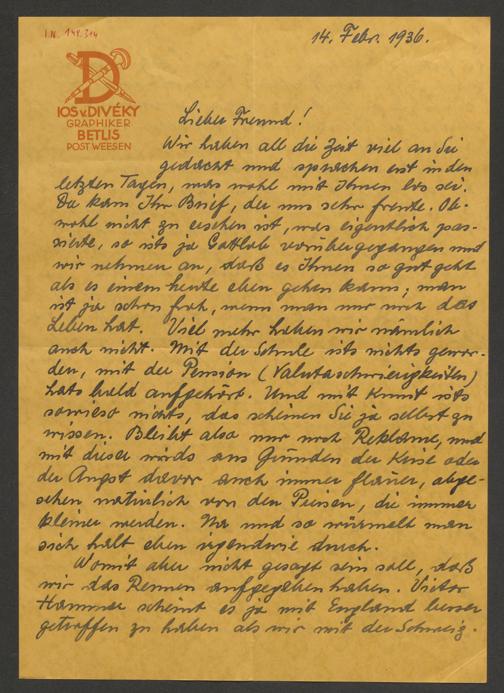 I.N. 141.314
14. Febr. 1936.
D
IOS v. DIVÉKY
GRAPHIKER
BETLIS
POST WEESEN
Lieber Freund!
Wir haben all die Zeit viel an Sie
gedacht und sprachen erst in den
letzten Tagen, was wohl mit Ihnen los sei.
Da kam Ihr Brief, der uns sehr freute. Ob-
wohl nicht zu ersehen ist, was eigentlich pas-
sierte, so ists ja Gottlob vorübergegangen und
wir nehmen an, daß es Ihnen so gut geht
als es einem heute eben gehen kann; man
ist ja schon froh, wenn man nur noch das
Leben hat. Viel mehr haben wir nämlich
auch nicht. Mit der Schule ists nichts gewor-
den, mit der Pension (Valutaschwierigkeiten)
hats bald aufgehört. Und mit Kunst ists
sowieso nichts, das scheinen Sie ja selbst zu
wissen. Bleibt also nur noch Reklame, und
mit dieser wirds aus Gründen der Krise oder
der Angst davor auch immer flauer, abge-
sehen natürlich von den Preisen, die immer
kleiner werden. Na und so würmelt man
sich halt eben irgendwie durch.
Womit aber nicht gesagt sein soll, daß
wir das Rennen aufgegeben haben. Victor
Hammer scheint es ja mit England besser
getroffen zu haben als wir mit der Schweiz.